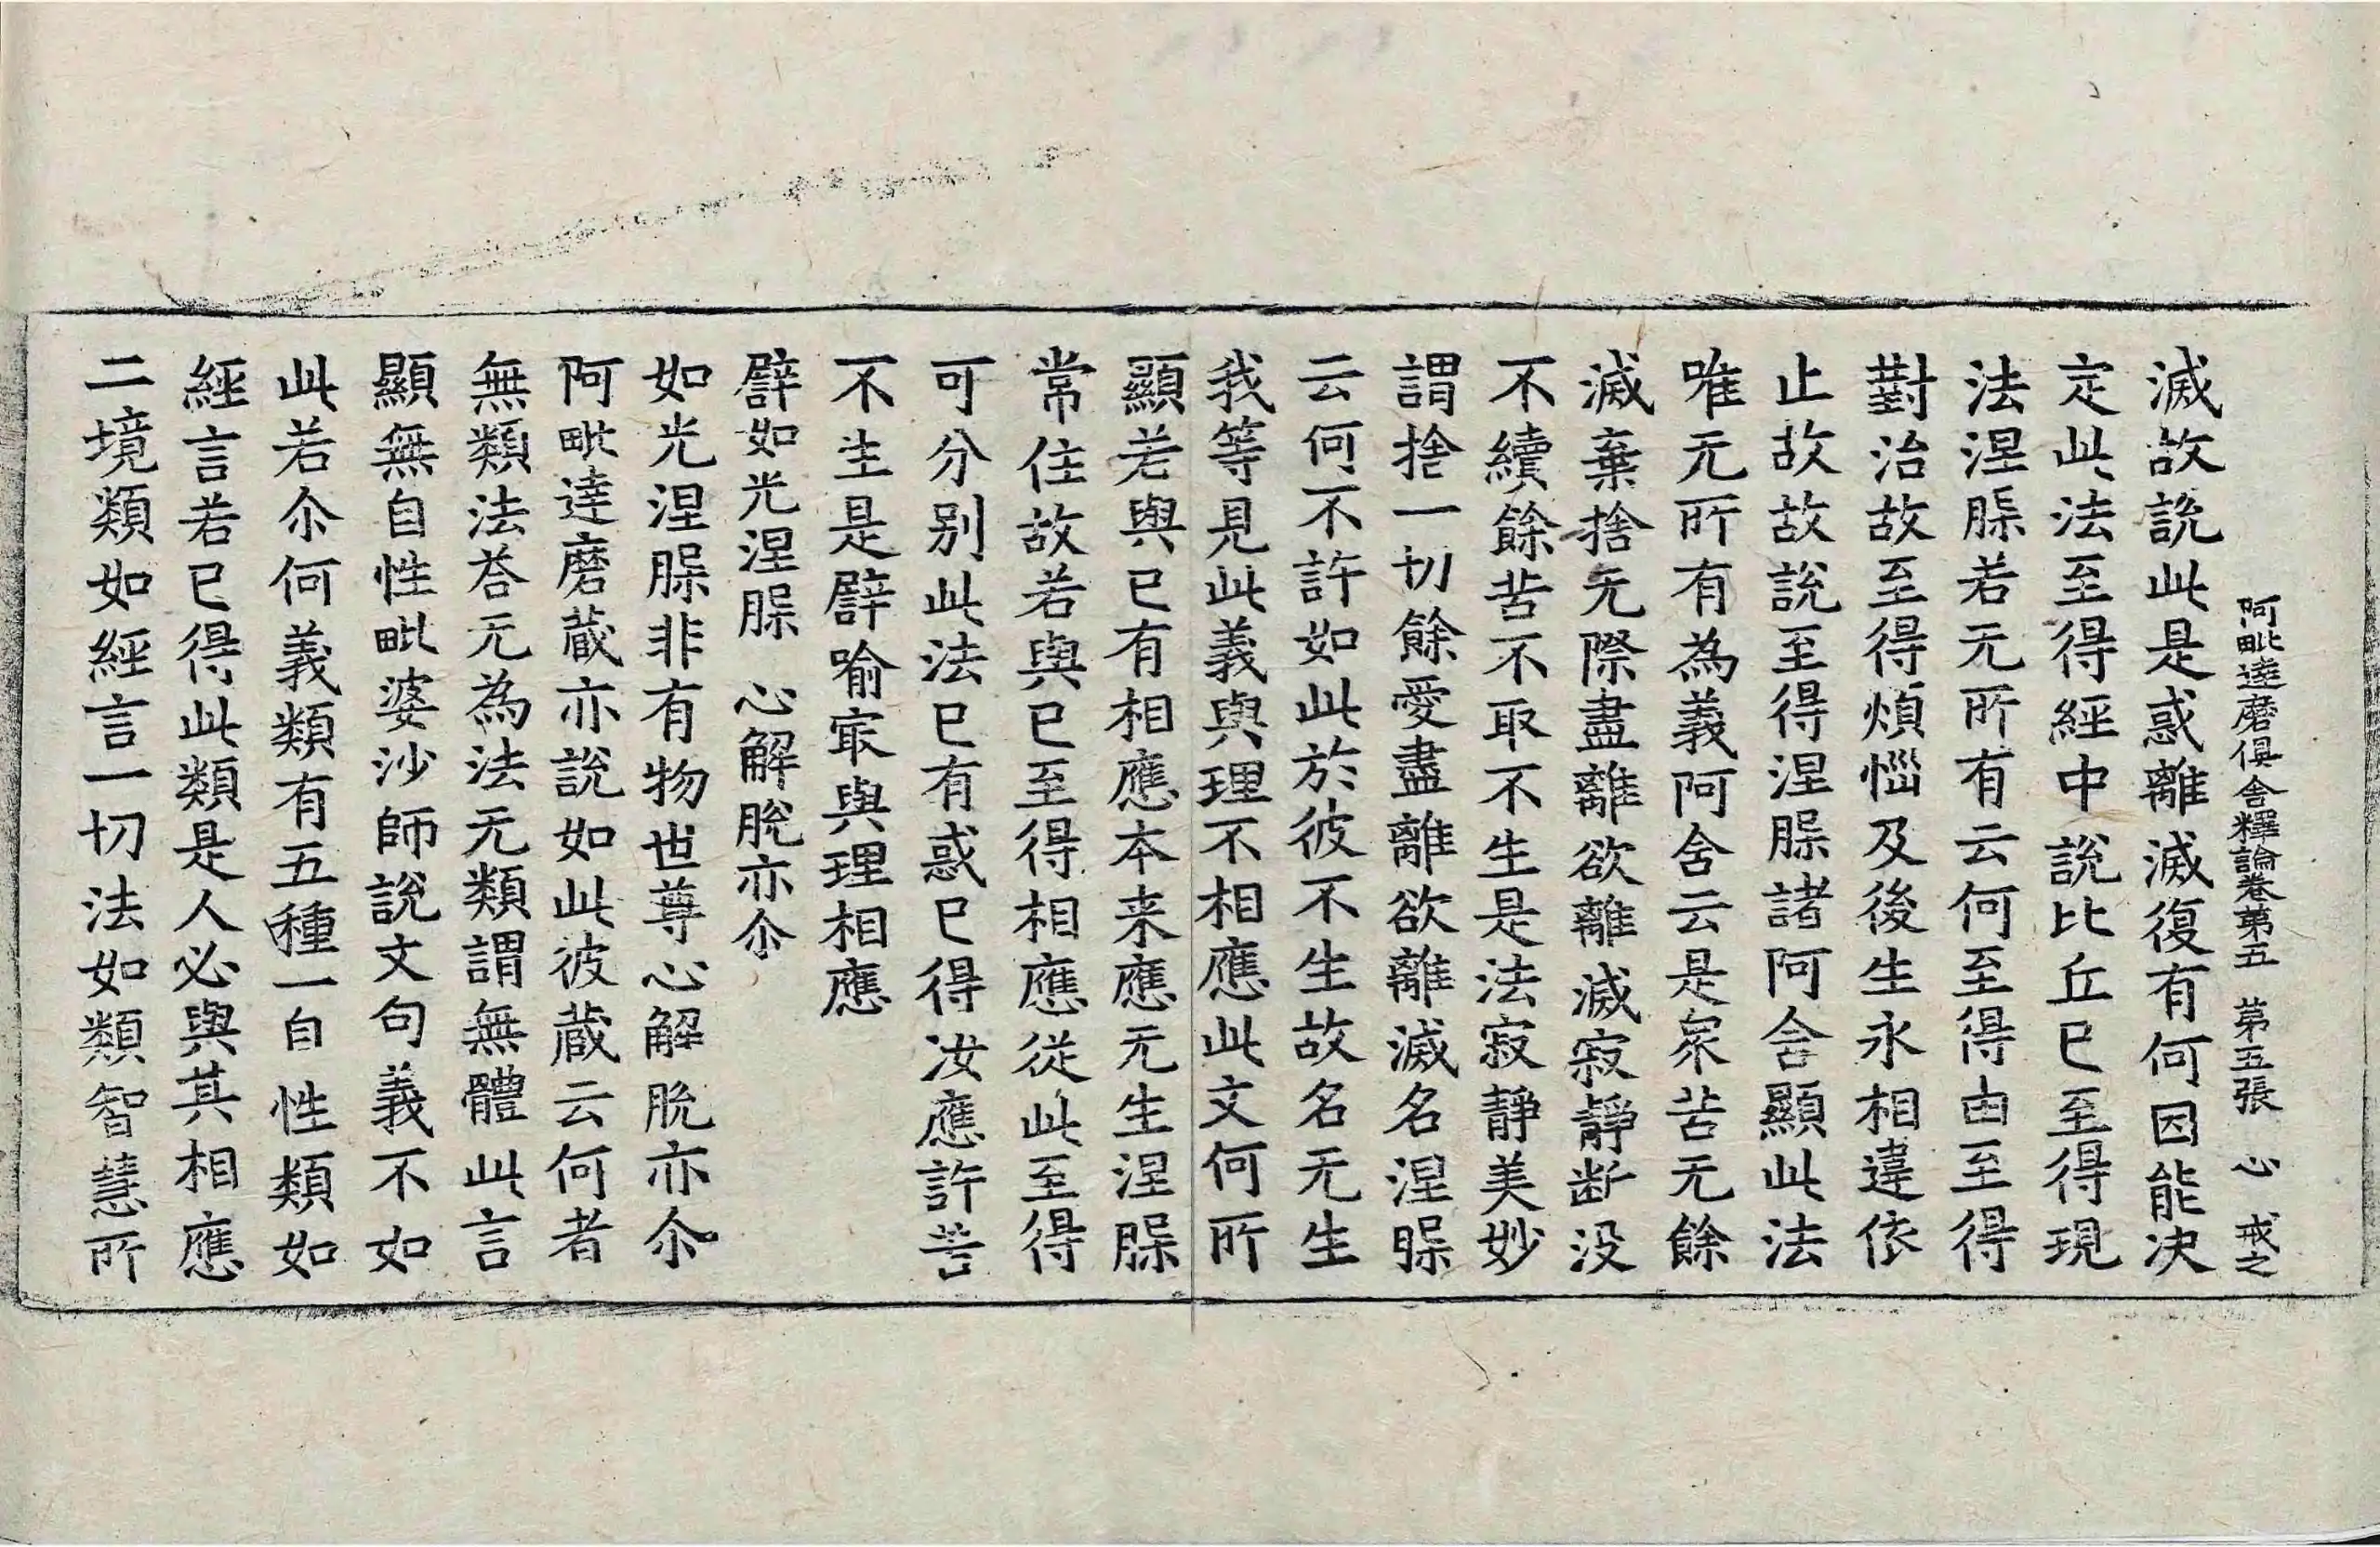 阿毗達磨俱舍釋論卷第五　第五張　心　戒之
滅故說此是惑離滅復有何因能决
定此法至得經中說比丘已至得現
法涅脲若无所有云何至得由至得
對治故至得煩惱及後生永相違依
止故故說至得涅脲諸阿含顯此法
唯无所有為義阿含云是衆苦无餘
滅棄捨无際盡離欲離滅寂靜断没
不續餘苦不取不生是法寂靜美妙
謂捨一切餘愛盡離欲離滅名涅脲
云何不許如此於彼不生故名无生
我等見此義與理不相應此文何所
顯若與已有相應本来應无生涅脲
常住故若與已至得相應從此至得
可分別此法已有惑已得汝應許苦
不生是譬喻寂與理相應
譬如光涅脲　心解脫亦尒
如光涅脲非有物世尊心解脫亦尒
阿毗達磨蔵亦說如此彼蔵云何者
無類法荅无為法无類謂無體此言
顯無自性毗婆沙師說文句義不如
此若尒何義類有五種一自性類如
經言若已得此類是人必與其相應
二境類如經言一切法如類智慧所